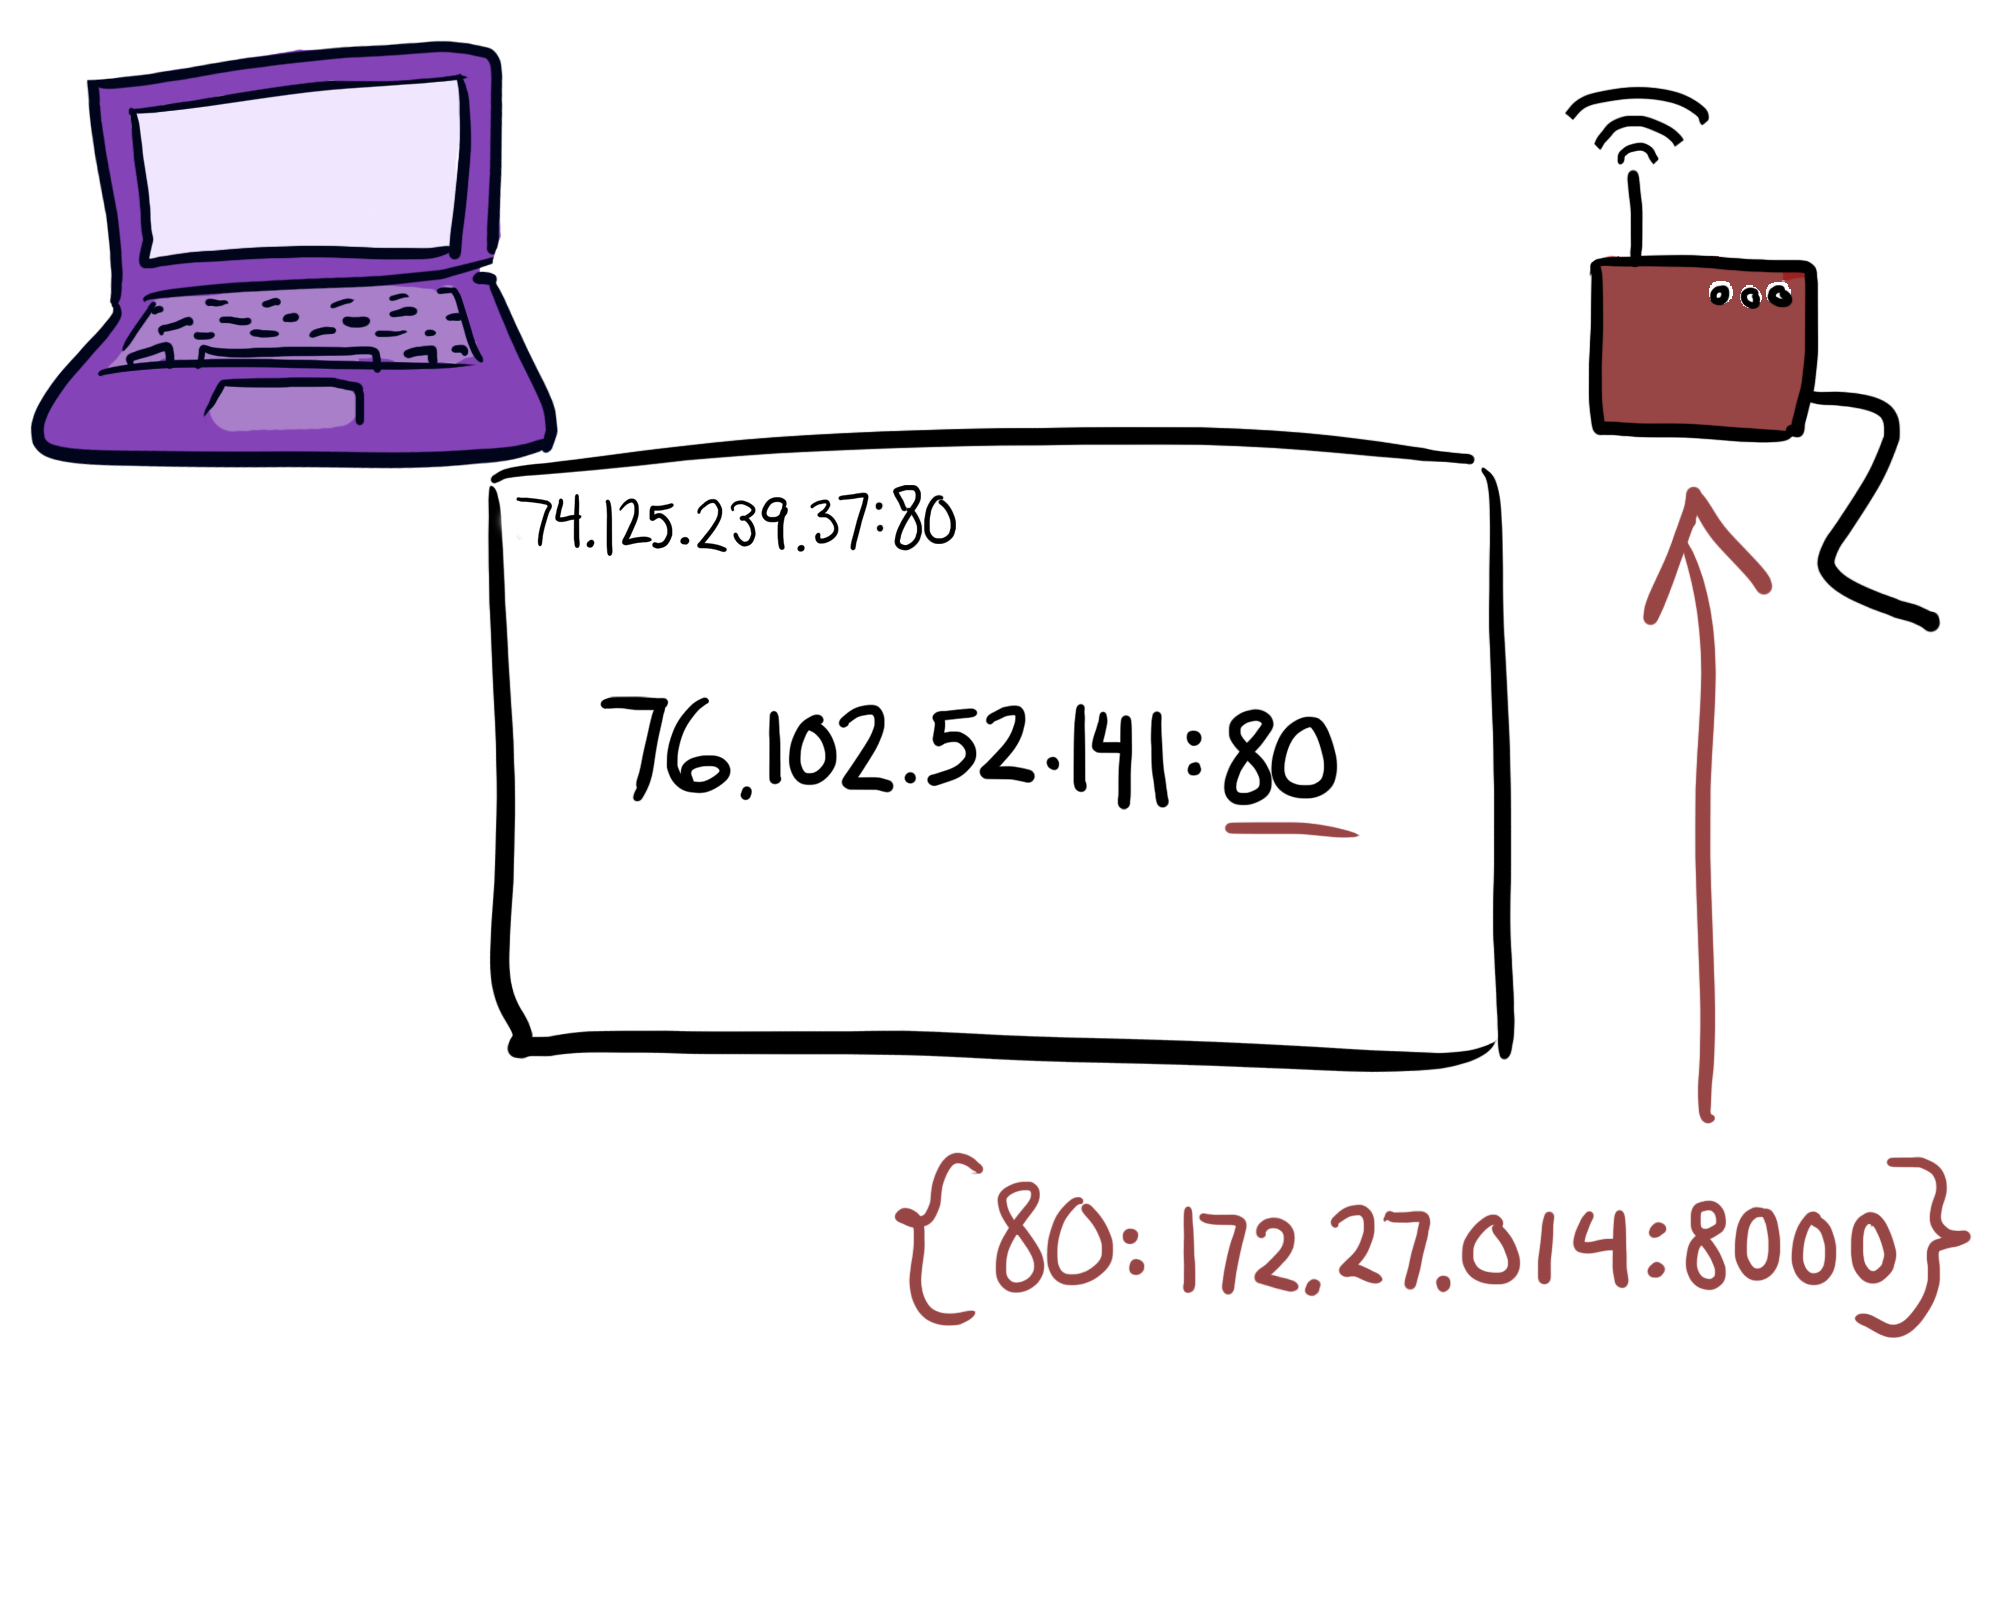 74.125.239.37:80
76.102.52.141:80
{80:172.27.014:8000}